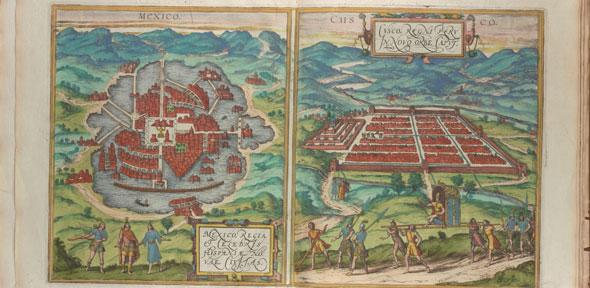 MEXICO.
CUSCO.
CUSCO, REGNI PERV
IN NOVO ORBE CAPVT.
MEXICO, REGIA
ET CELEBRIS
HISPANIÆ NO
VAE CIVITAS.